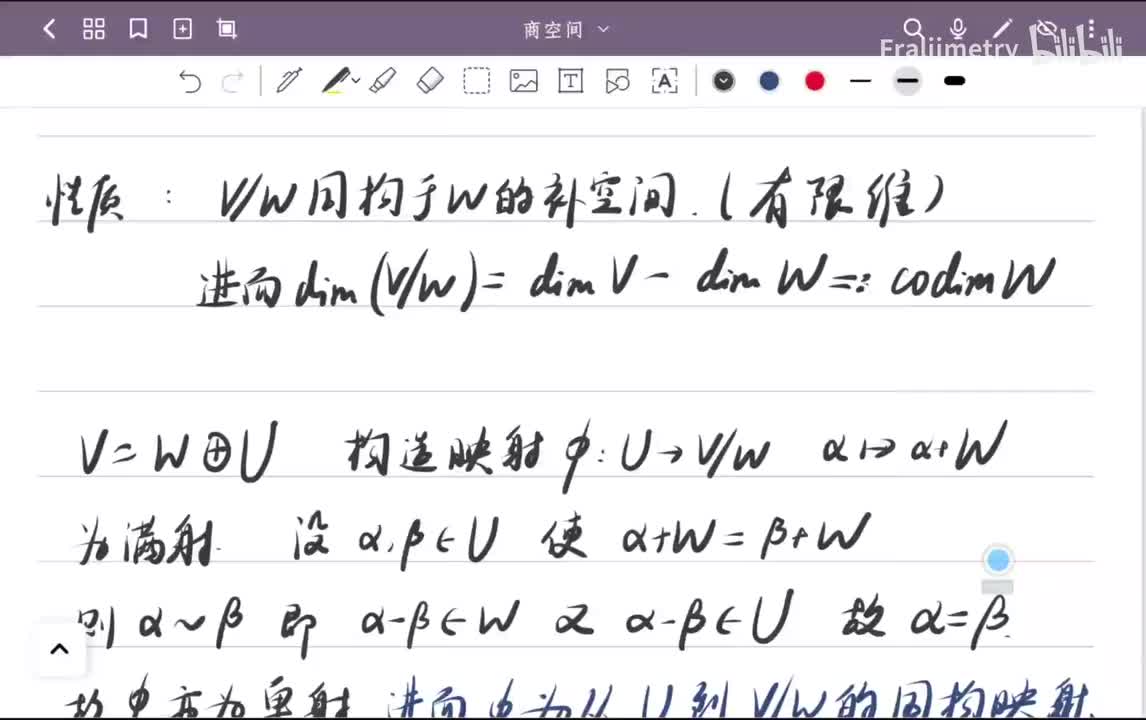 商空间
Fraliimetry bilibili
性质: V/W同构于W的补空间.(有限维)
进而dim(V/W)= dim V- dim W=: codim W
V= W⊕U 构造映射 φ: U→V/W α↦α+W
为满射. 设 α,β∈U 使 α+W=β+W
则 α~β 即 α-β∈W 又 α-β∈U 故 α=β.
故φ亦为单射 进而φ为从U到V/W的同构映射.